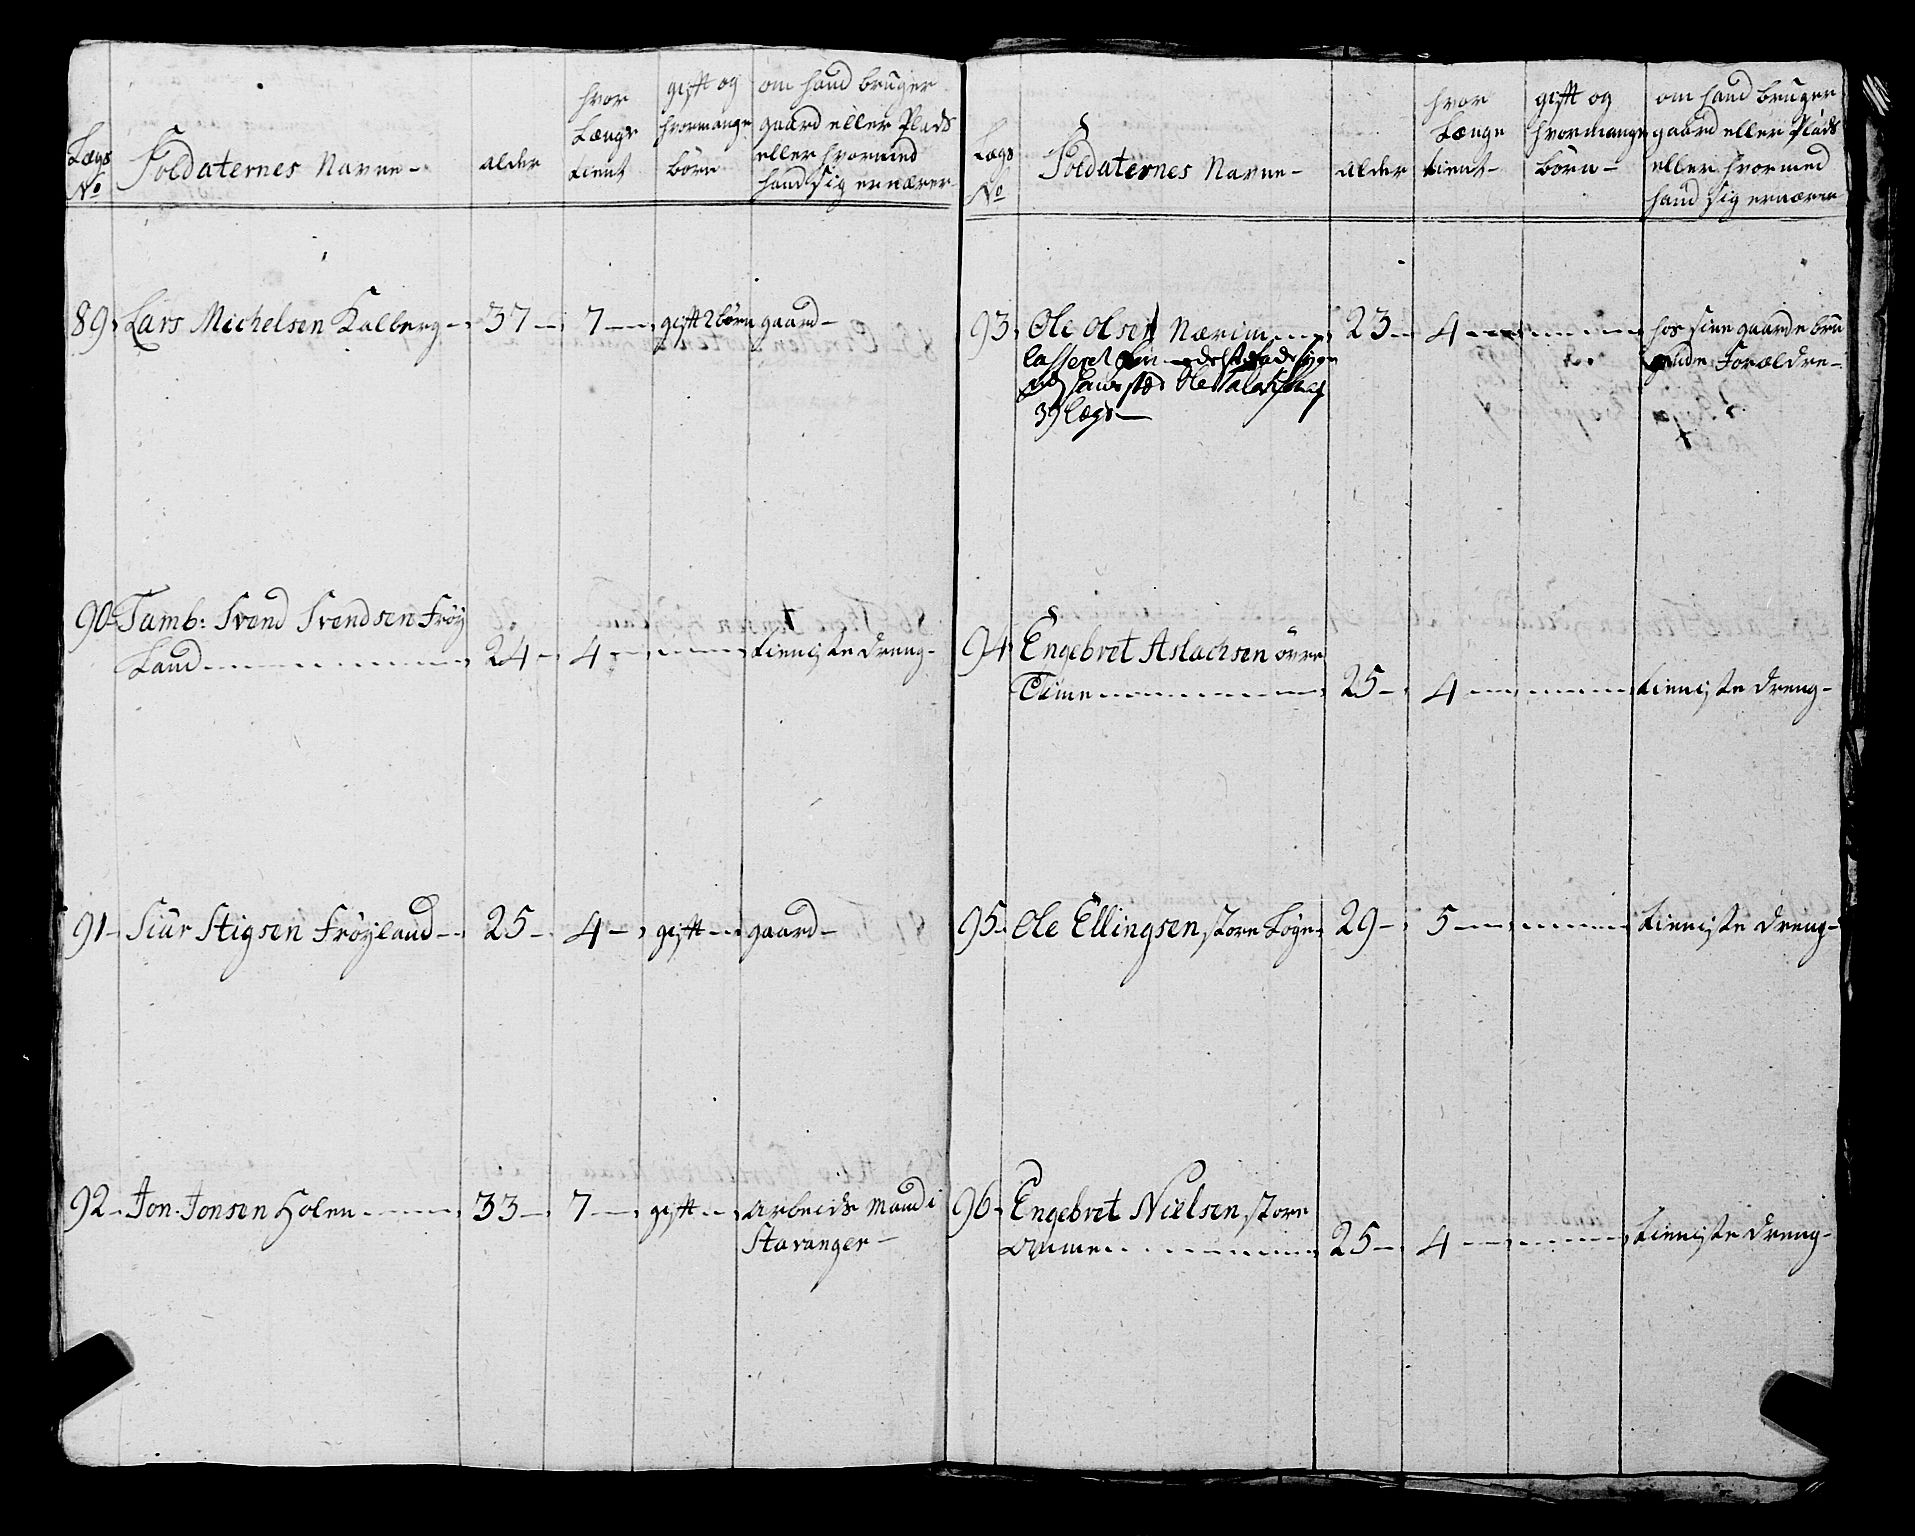 Lægs
No
Soldaternes Navne -
alder
hvor
Længe
tient
gifft og
hvormange
börn
om hand bruger
gaard eller Plads
eller hvormed
hand sig ernærer
89. Lars Michelsen Kalberg - 37 - 7 - gifft 2 börn gaard -
90. Tamb: Svend Svendsen Fröÿ
Land - 24 - 4 - tieniste dreng -
91 - Siur Stigsen Fröÿland - 25 - 4 - gifft - gaard -
92 - Jon Jonsen Holen - 33 - 7 - gifft - Arbeids Mand i
Stavanger -
Lægs
No
Soldaternes Navne -
alder
hvor
Længe
tient -
gifft og
hvormange
börn -
om hand bruger
gaard eller Plads
eller hvormed
hand sig ernærer
93. Ole Olsen Nærim - 23 - 4 - hos sine gaarde bru
gende Forældre -
Casseret
hans sted Ole
39 Lægd -
94. Engebret Aslachsen övre
Time - 25 - 4 - tieniste dreng -
95. Ole Ellingsen store Löge - 29 - 5 - tieniste dreng -
96. Engebret Nielsen store
Omme - 25 - 4 - tieniste dreng -